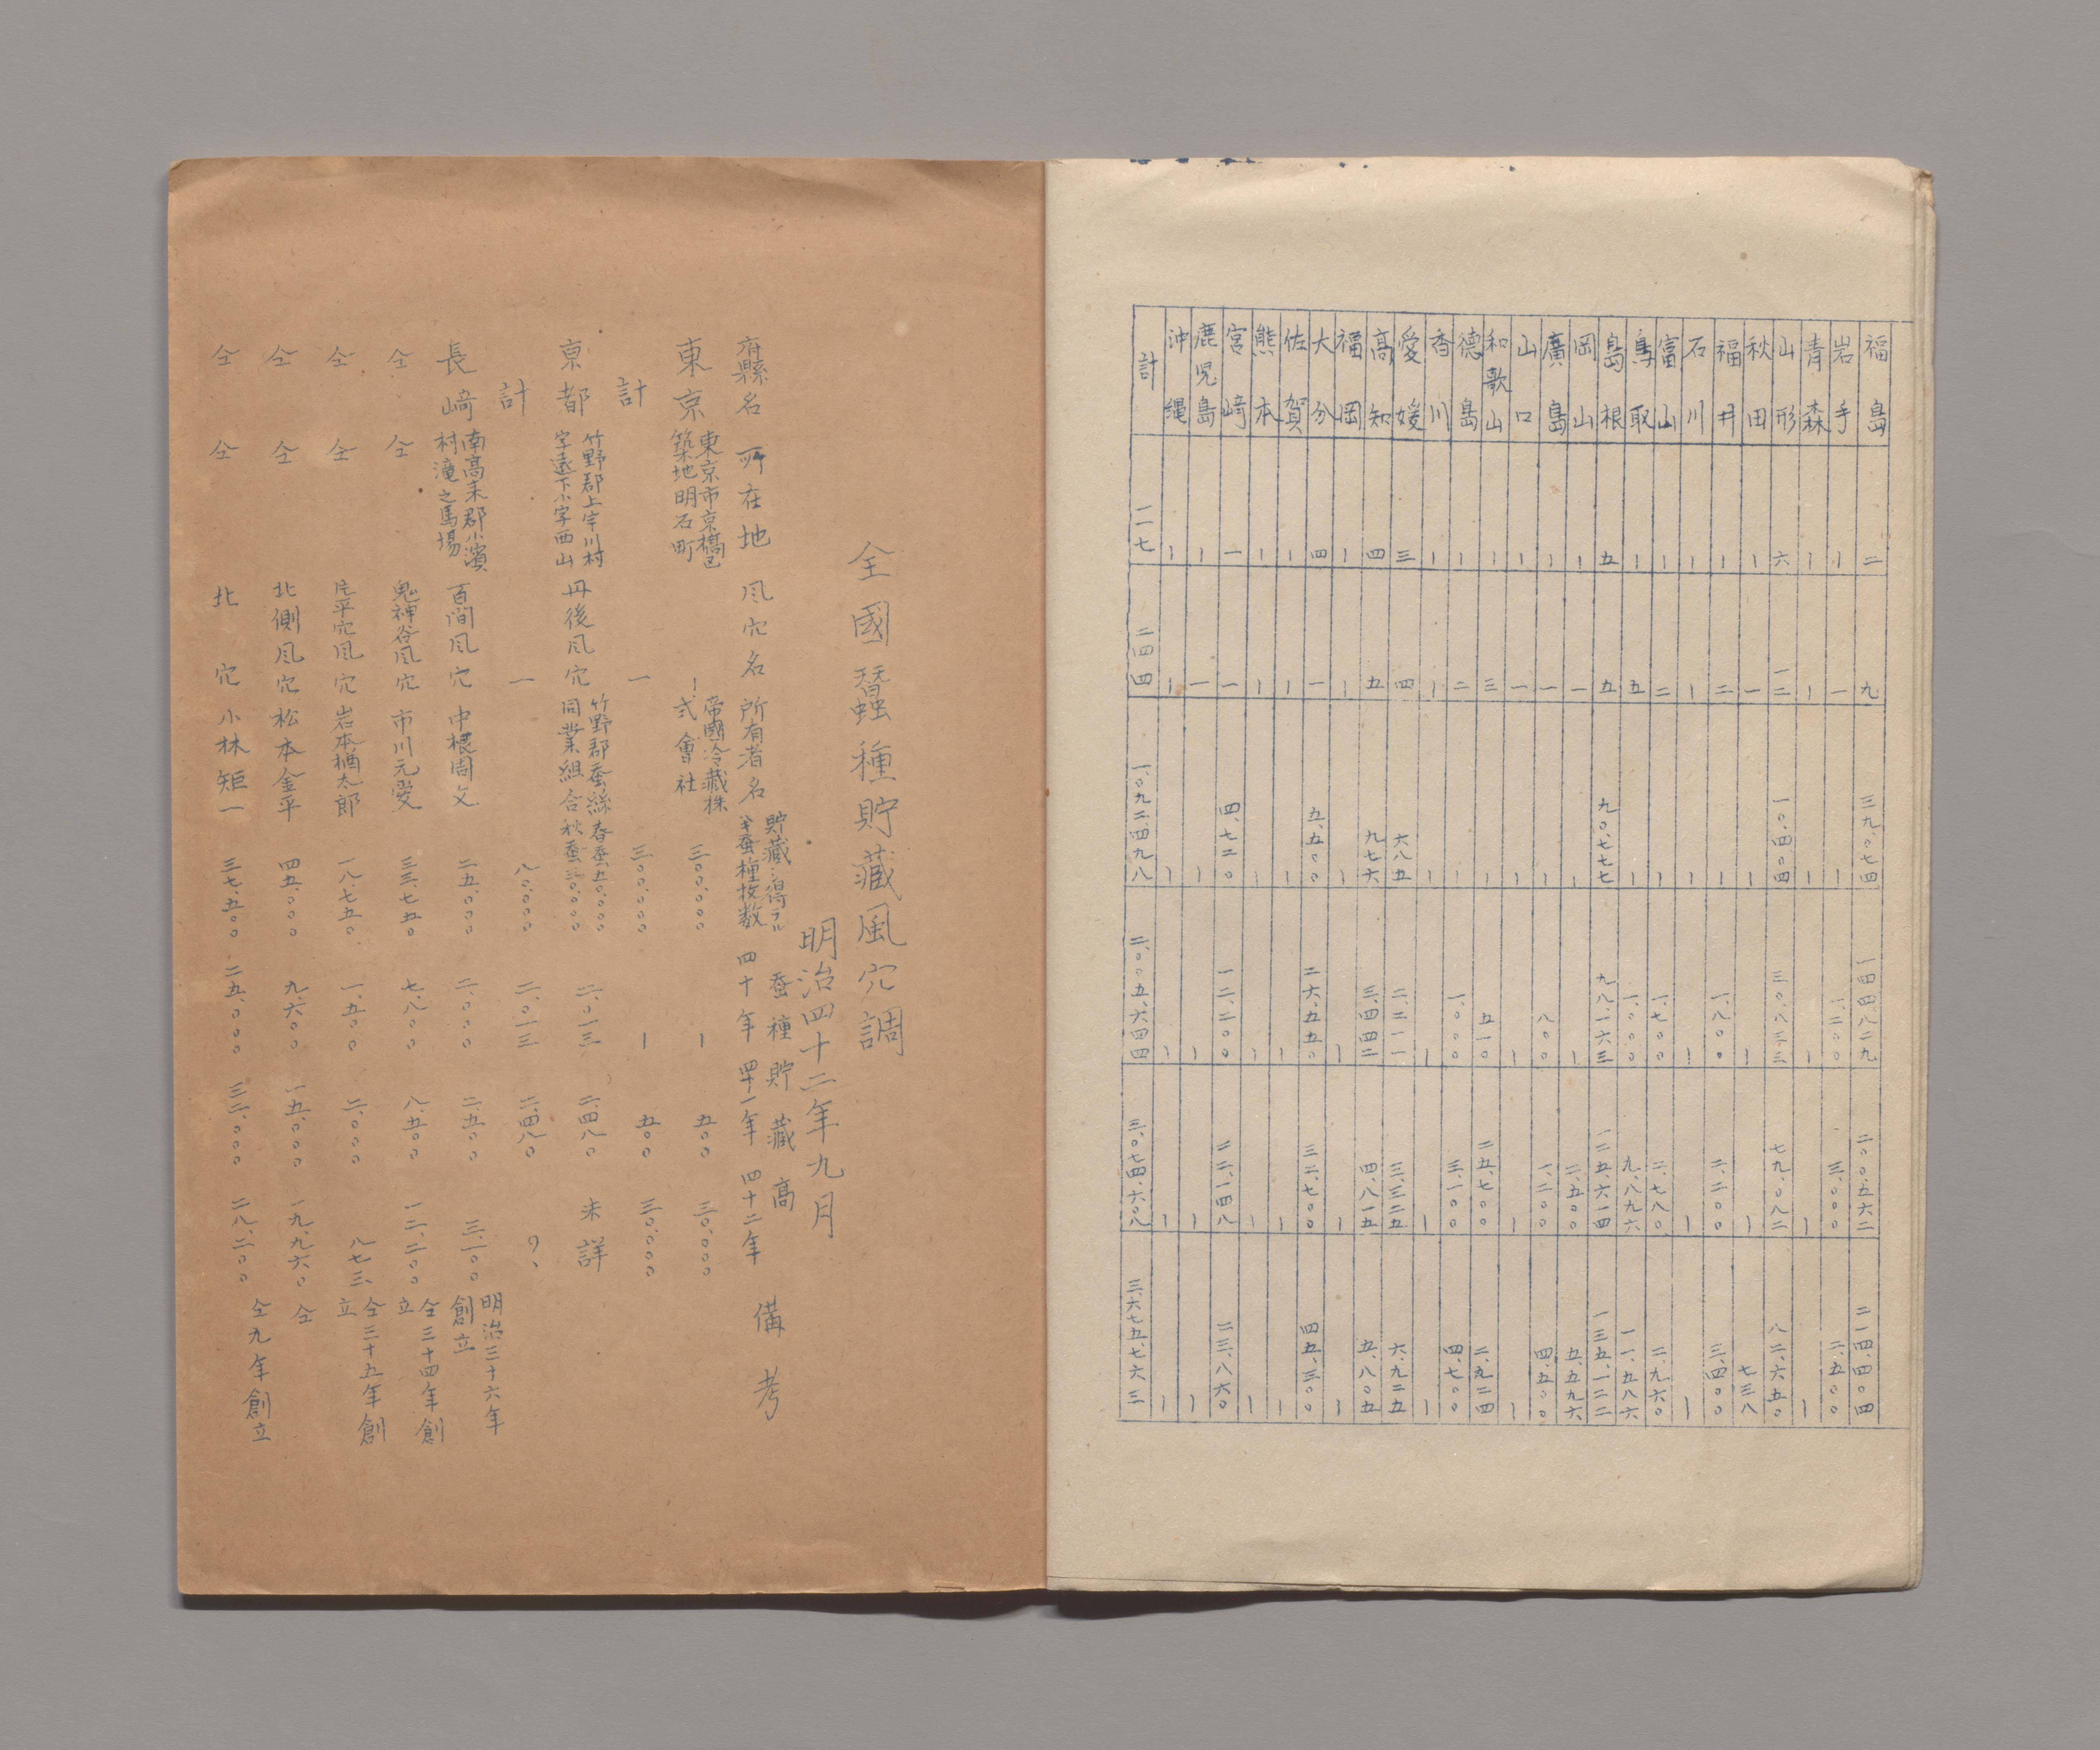 福島 二 九 三九、〇七四 一四四、八二九 二〇〇、五六二 二一四、四〇四
岩手 〡 一 〡 一、二〇〇 三、〇〇〇 二、五〇〇
青森 〡 〡 〡 〡 〡 〡
山形 六 一二 一〇、四〇四 三〇、八三三 七九、〇八二 八二、六五〇
秋田 〡 一 〡 〡 〡 七三八
福井 〡 二 〡 一、八〇〇 二、二〇〇 三、四〇〇
石川 〡 〡 〡 〡 〡 〡
富山 〡 二 〡 一、七〇〇 二、七八〇 二、九六〇
鳥取 〡 五 〡 一、〇〇〇 九、八九六 一一、五八六
島根 五 五 九〇、七七七 九八、一六三 一二五、六一四 一三五、一二二
岡山 〡 一 〡 〡 二、五〇〇 五、五九六
廣島 〡 一 〡 八〇〇 一、二〇〇 四、五〇〇
山口 〡 一 〡 〡 〡 〡
和歌山 〡 三 〡 五一〇 二五、七〇〇 二、九二四
德島 〡 二 〡 一、〇〇〇 三、一〇〇 四、七〇〇
香川 〡 〡 〡 〡 〡 〡
愛媛 三 四 六八五 二、二一一 三、三二五 六、九二五
高知 四 五 九七六 三、四四二 四、八一五 五、八〇五
福岡 〡 〡 〡 〡 〡 〡
大分 四 一 五、五〇〇 二六、五五〇 三二、七〇〇 四五、三〇〇
佐賀 〡 〡 〡 〡 〡 〡
熊本 〡 〡 〡 〡 〡 〡
宮崎 一 一 四、七二〇 一二、二〇〇 二二、一四八 二三、八六〇
鹿児島 〡 一 〡 〡 〡 〡
沖縄 〡 〡 〡 〡 〡 〡
計 一一七 二四四 一、〇九二、四九八 二、〇〇五、六四四 三、〇七四、六〇八 三、六七五、七六三
全國蠶種貯藏風穴調
明治四十二年九月
府縣名 所在地 風穴名 所有者名 貯藏シ得ラル蚕種枚数 蚕種貯藏高 四十年 四十一年 四十二年 備考
東京 東京市京橋区築地明石町 〡 帝國冷藏株式會社 三〇〇、〇〇〇 〡 五〇〇 三〇、〇〇〇
計 一 三〇〇、〇〇〇 〡 五〇〇 三〇、〇〇〇
京都 竹野郡上宇川村字遠下小字西山 丹後風穴 竹野郡蚕絲同業組合 春蚕五〇、〇〇〇 秋蚕三〇、〇〇〇 二、〇一三 二、四八〇 未詳
計 一 八〇、〇〇〇 二、〇一三 二、四八〇 ?、
長﨑 南高来郡小濱村滝之馬場 百間風穴 中根周文 二五、〇〇〇 二、〇〇〇 二、五〇〇 三、一〇〇 明治三十六年創立
仝 仝 鬼神谷風穴 市川元愛 三三、七五〇 七、八〇〇 八、五〇〇 一二、二〇〇 仝三十四年創立
仝 仝 片平穴風穴 岩本楢太郎 一八、七五〇 一、五〇〇 二、〇〇〇 八七三 仝三十五年創立
仝 仝 北側風穴 松本金平 四五、〇〇〇 九、六〇〇 一五、〇〇〇 一九、九六〇 仝
仝 仝 北穴 小林矩一 三七、五〇〇 二五、〇〇〇 三二、〇〇〇 二八、二〇〇 仝九年創立